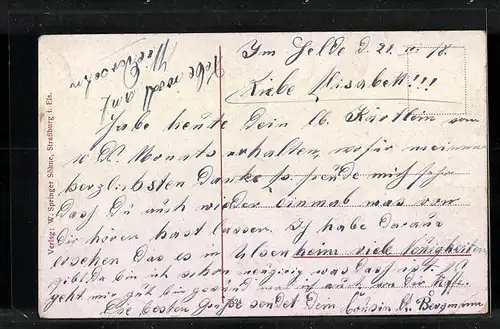 Im Felde d. 21. VI. 18.
Liebe Elisabeth!!!
Habe heute Dein lb. Kärtlein vom
10 d. Monats erhalten, wofür meinen
herzlichsten Danke
Dass Du auch wieder einmal was von
Dir hören hast lassen. Ich habe daraus
ersehen das es in Ulsenheim viele Neuigkeiten
gibt. Da bin ich schon neugierig was das ist. Es
geht mir gut bin gesund was ich auch von Dir hoffe.
Die besten Grüße sendet Dein Cousin G. Bergmann
Lebe wohl
auf
Wiedersehn
Verlag: W. Springer Söhne, Straßburg i. Els.